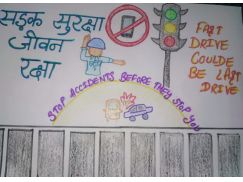 सड़क सुरक्षा
जीवन
रक्षा
FAST
DRIVE
COULDE
BE LAST
DRIVE
STOP ACCIDENTS BEFORE THEY STOP YOU